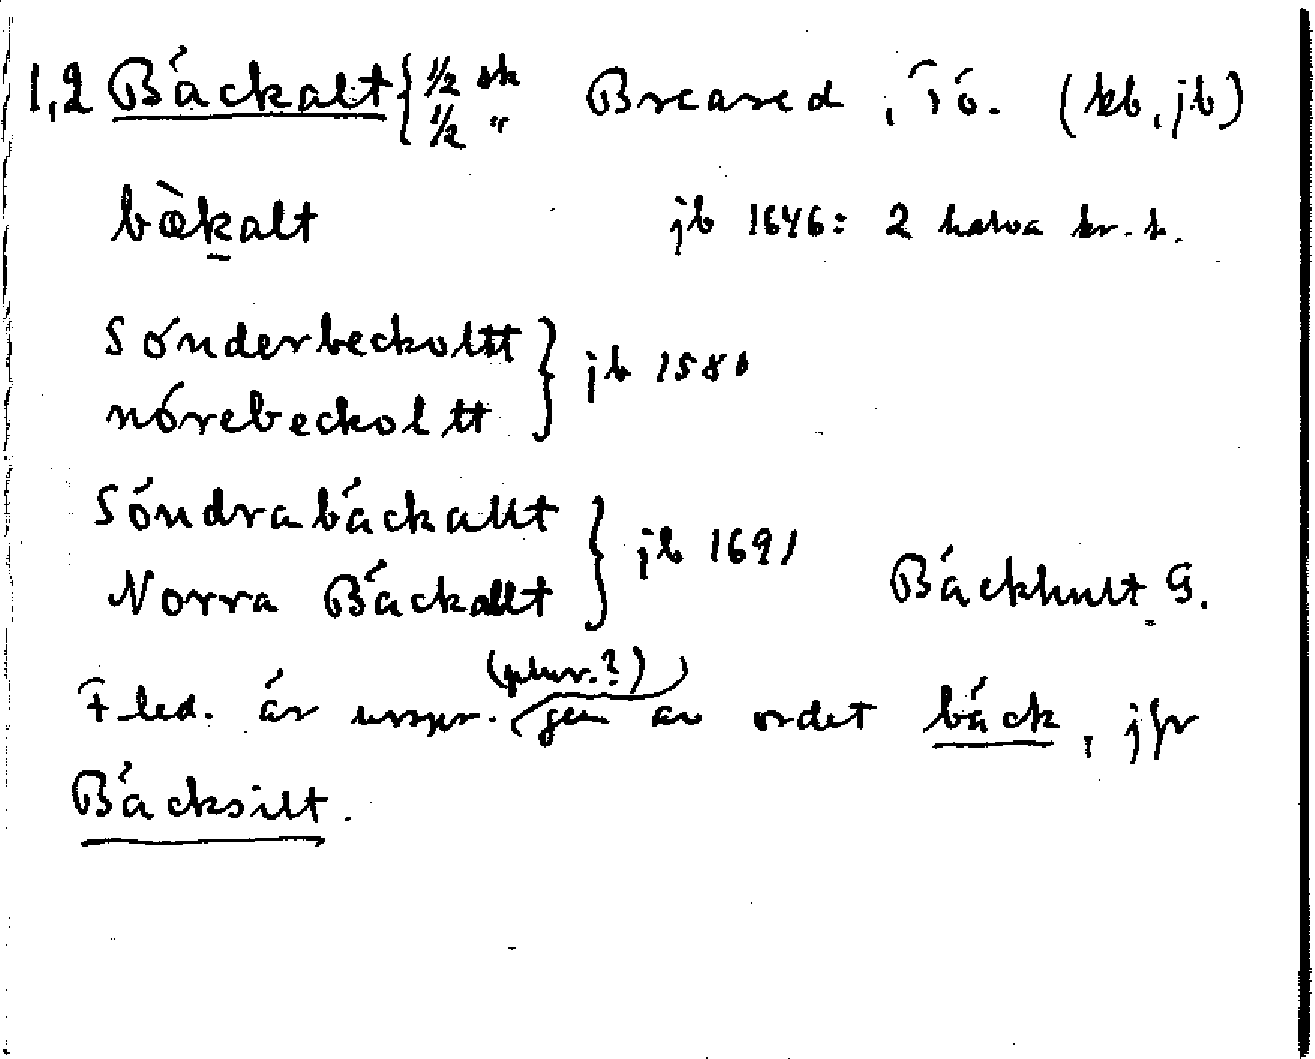 1,2 Bäckalt { 1/2 sk Breared, Tö. (kb, jb)
1/2 "
bækalt jb 1646: 2 halva kr. h.
Sönderbeckoltt } jb 1580
nörebeckoltt
Söndrabäckallt } jb 1691
Norra Bäckallt Bäckhult G.
(plur.?)
F led. är urspr. (gen av ordet bäck, jfr
Bäcksilt.